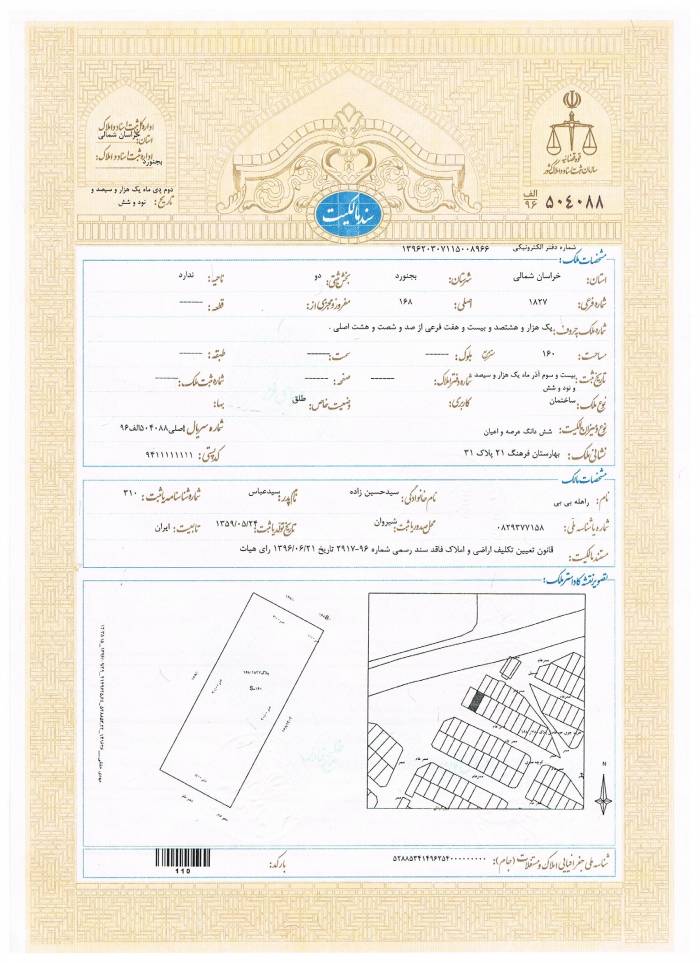 قوه قضائیه
سازمان ثبت اسناد و املاک کشور
الف
۹۶
۵۰۴۰۸۸
اداره کل ثبت اسناد و املاک
استان: خراسان شمالی
اداره ثبت اسناد و املاک:
بجنورد
دوم دی ماه یک هزار و سیصد و
تاریخ: نود و شش
سند مالکیت
شماره دفتر الکترونیکی ۱۳۹۶۲۰۳۰۷۱۱۵۰۰۸۹۶۶
مشخصات ملک:
استان: خراسان شمالی شهرستان: بجنورد بخش ثبتی: دو ناحیه: ندارد
شماره فرعی: ۱۸۲۷ اصلی: ۱۶۸ مفروز و مجزی از: ------ قطعه: ------
شماره ملک بحروف: یک هزار و هشتصد و بیست و هفت فرعی از صد و شصت و هشت اصلی .
مساحت: ۱۶۰ مترمربع بلوک: ------ سمت: ------ طبقه: ------
تاریخ ثبت: بیست و سوم آذر ماه یک هزار و سیصد و نود و شش شماره دفتر املاک: ------ صفحه: ------ شماره ثبت ملک: ------
نوع ملک: ساختمان کاربری: وضعیت خاص: طلق بها:
نوع و میزان مالکیت: شش دانگ عرصه و اعیان شماره سریال: اصلی۵۰۴۰۸۸الف۹۶
نشانی ملک: بهارستان فرهنگ ۲۱ پلاک ۳۱ کدپستی: ۹۴۱۱۱۱۱۱۱۱
مشخصات مالک:
نام: راهله بی بی نام خانوادگی: سیدحسین زاده نام پدر: سیدعباس شماره شناسنامه یا ثبت: ۳۱۰
شماره یا شناسه ملی: ۰۸۲۹۳۷۷۱۵۸ محل صدور یا ثبت: شیروان تاریخ تولد یا ثبت: ۱۳۵۹/۰۵/۲۴ تابعیت: ایران
مستند مالکیت: قانون تعیین تکلیف اراضی و املاک فاقد سند رسمی شماره ۹۶-۲۹۱۷ تاریخ ۱۳۹۶/۰۶/۲۱ رای هیات
تصویر نقشه کاداستر ملک:
N
شناسه ملی جغرافیایی املاک و مستغلات (جام): ۵۲۸۸۵۳۴۱۴۹۶۲۵۴۰۰۰۰۰۰۰۰۰۰
بارکد:
110